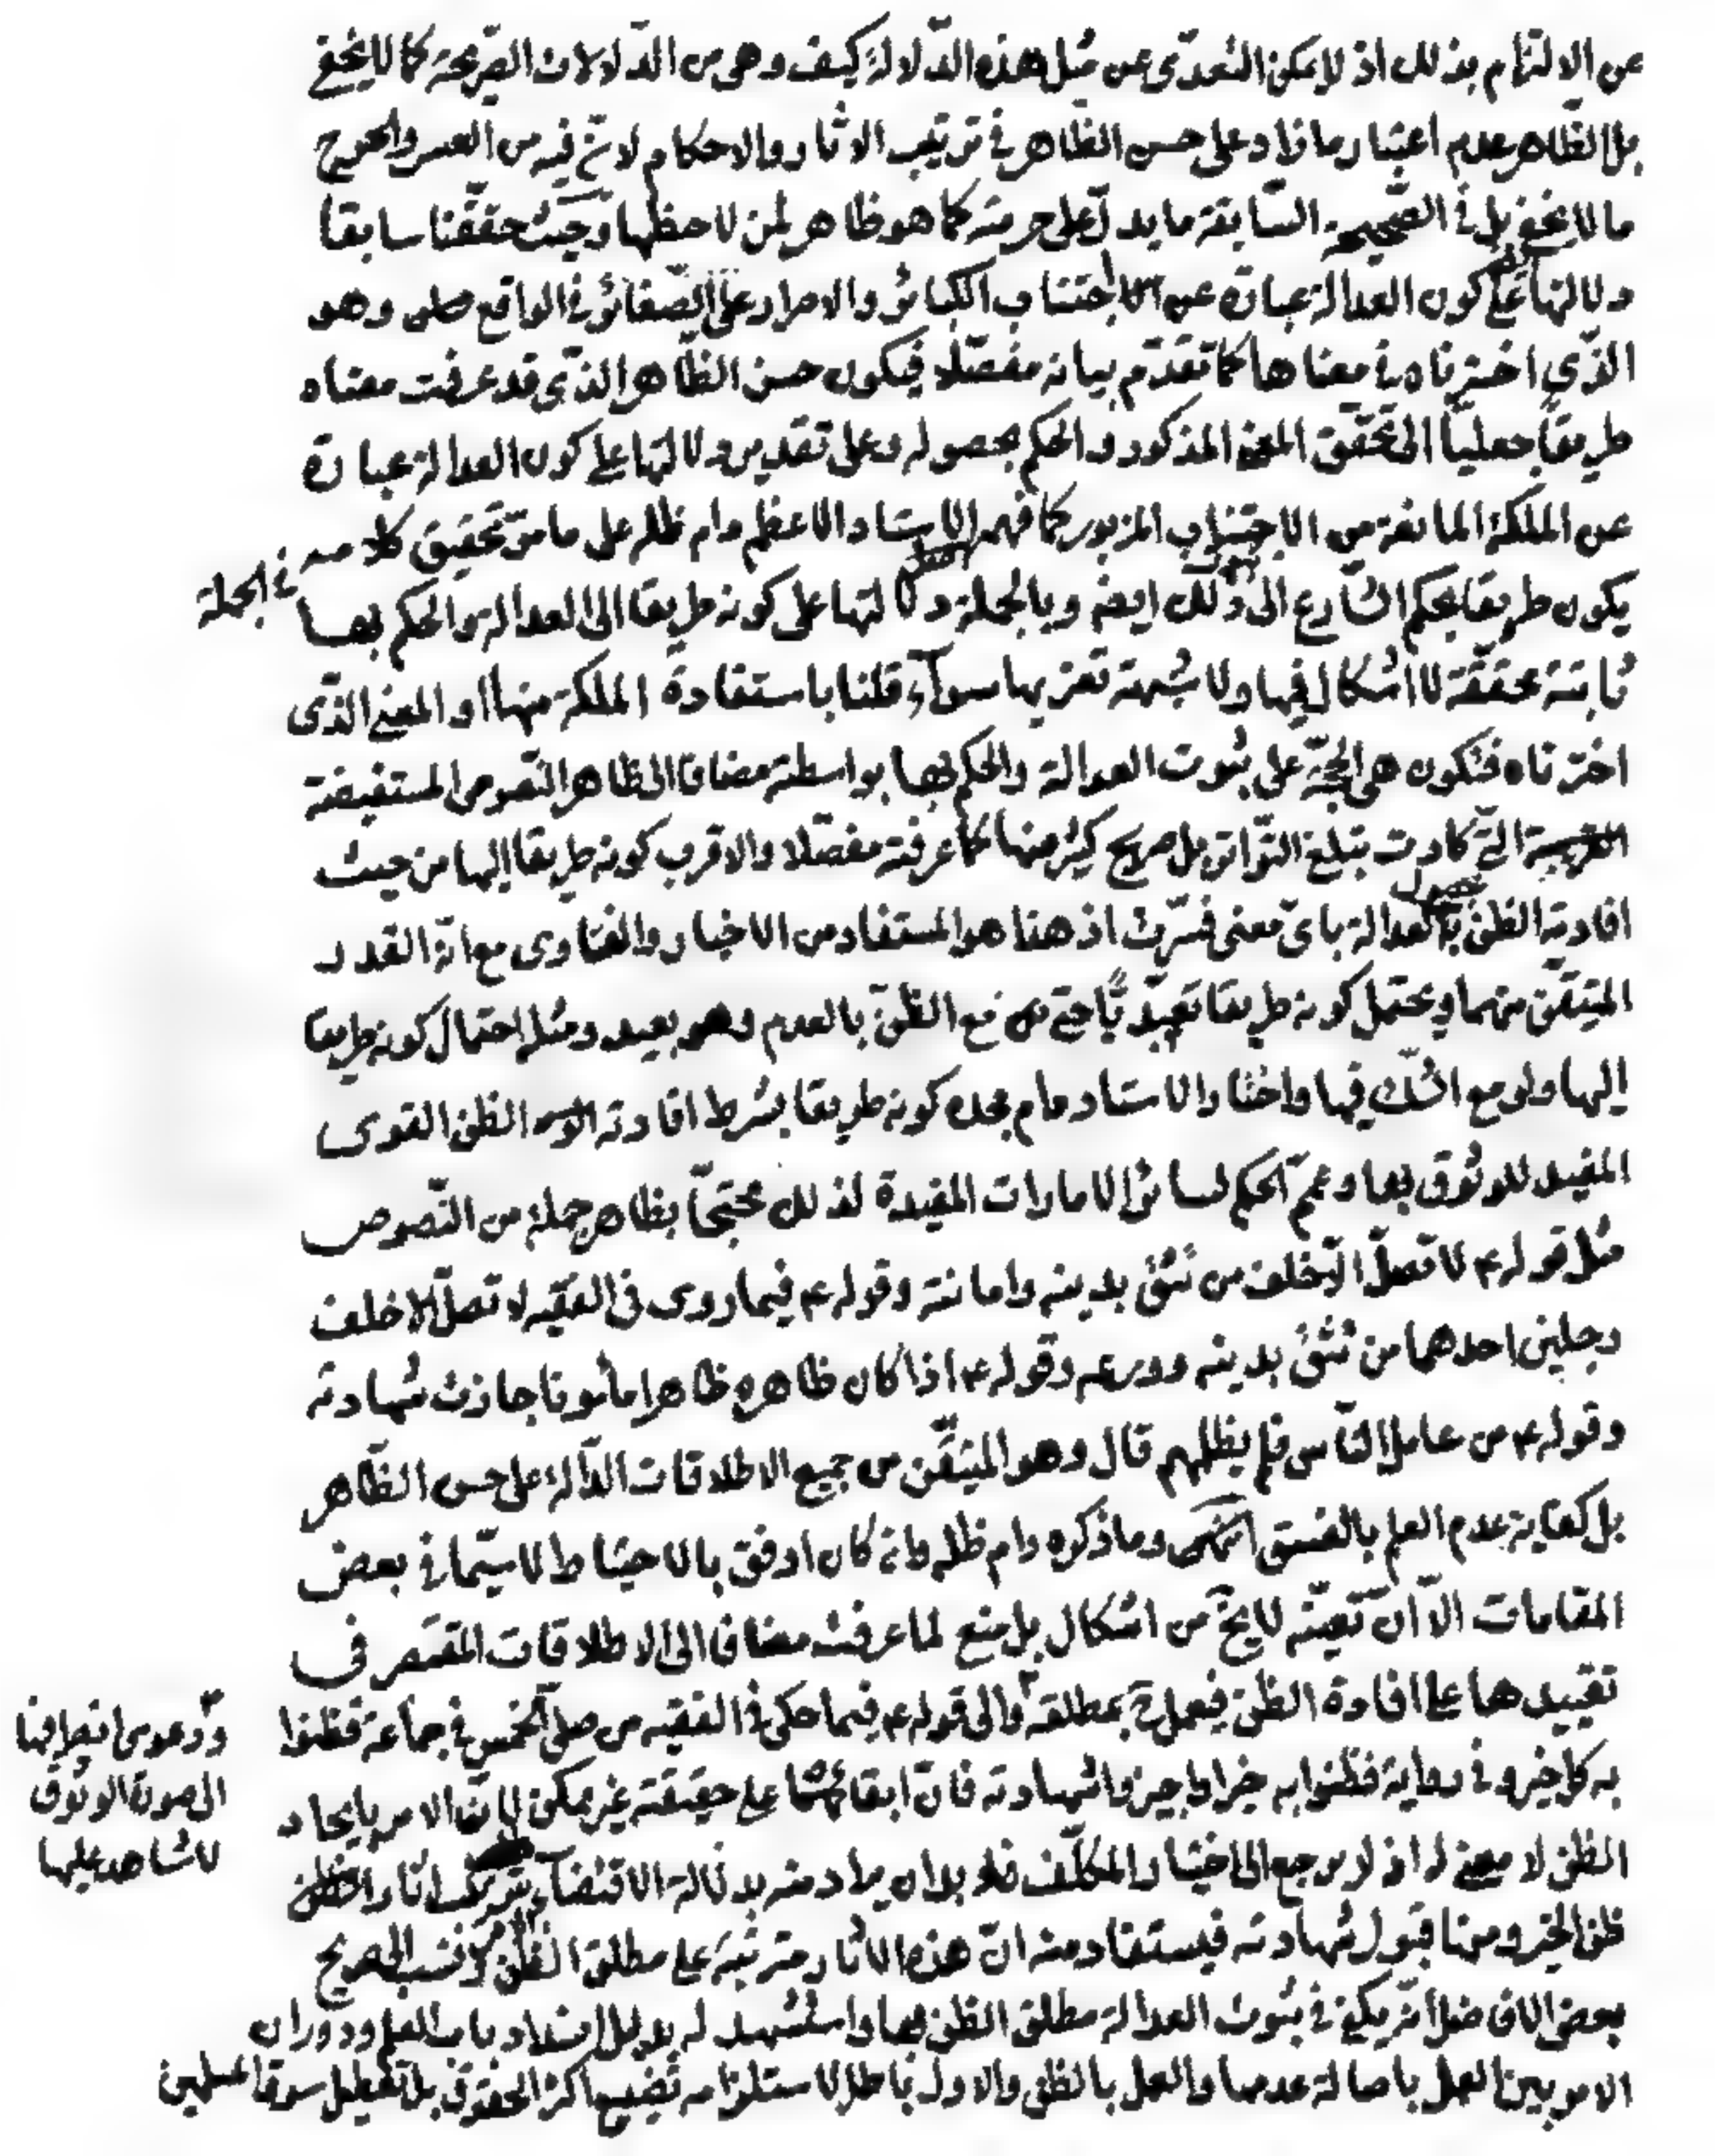 عن الالتزام بذلك اذ لا يمكن التعدّى عن مثل هذه الدّلالة كيف وهى من الدّلالات الصّريحة كما لا يخفى
بل الظّاهر عدم اعتبار ما زاد على حسن الظّاهر فى ترتيب الاثار والاحكام لانّ فيه من العسر والحرج
ما لا يخفى بل فى الصّحيحة السّابقة ما يدلّ على حرمته كما هو ظاهر لمن لاحظها وحيث حقّقنا سابقا
دلالتها على كون العدالة عبارة عن الاجتناب الكبائر والاصرار على الصّغائر فى الواقع وهو
الذّى اخترناه فى معناها كما تقدّم بيانه مفصّلا فيكون حسن الظّاهر الذّى قد عرفت معناه
طريقا جعليّا الى تحقّق المعنى المذكور والحكم بحصوله وعلى تقدير دلالتها على كون العدالة عبارة
عن الملكة المانعة من الاجتناب المزبور كما فهمه الاستاد الاعظم دام ظله على ما مرّ تحقيق كلامه فى الجملة
يكون طريقا بحكم الشّارع الى ذلك ايضه وبالجملة دلالتها على كونه طريقا الى العدالة والحكم بها
ثابتة محقّقة لا اشكال فيها ولا شبهة تعتريها سوآء قلنا باستفادة الملكة منها او المعنى الذّى
اخترناه فتكون هى الحجّة على ثبوت العدالة والحكم بها بواسطته مضافا الى ظاهر النّصوص المستفيضة
الّتى كادت تبلغ التّواتر بل صريح كثير منها كما عرفته مفصّلا والاقرب كونه طريقا اليها من حيث
افادته الظنّ بحصول العدالة باىّ معنى فسّرت اذ هذا هو المستفاد من الاخبار والفتاوى مع انّه القدر
المتيقّن منهما ويحتمل كونه طريقا تعبّديّا حتى مع الظّنّ بالعدم وهو بعيد ومثله احتمال كونه طريقا
اليها ولو مع الشّك فيها واختار الاستاد دام مجده كونه طريقا بشرط افادته الظن القوى
المفيد للوثوق بها وعمّم الحكم لسائر الامارات المفيدة لذلك محتجّا بظاهر جملة من النّصوص
مثل قوله ع لا تصلّ الّا خلف من تثق بدينه وامانته وقوله ع فيما روى فى الفقيه لا تصلّ الا خلف
رجلين احدهما من تثق بدينه وورعه وقوله ع اذا كان ظاهره ظاهرا مأمونا جازت شهادته
وقوله ع من عامل النّاس فلم يظلمهم قال وهو المتيقّن من جميع الاطلاقات الدّالة على حسن الظّاهر
بل كفاية عدم العلم بالفسق انتهى وما ذكره دام ظله وان كان اوفق بالاحتياط لا سيّما فى بعض
المقامات الّا انّ تعيّنه لا يخ من اشكال بل منع لما عرفت مضافا الى الاطلاقات المقتصر فى
تقييدها على افادة الظنّ فيعمل ح بمطلقه والى قوله ع فيما حكى فى الفقيه من صلّى الخمس فى جماعة فظنوا
به كل خير وفى رواية فظنوا به خيرا واجيزوا شهادته فانّ ابقائهما على حقيقته غير ممكن لانّ الامر بايجاد
الظن لا معنى له اذ لا مرجع الى اختيار المكلّف فلا بد ان يراد منه بدلالة الاقتضآء ترتيب اثار الظن
ظن الخير ومنها قبول شهادته فيستفاد منه انّ هذه الاثار مترتبة على مطلق الظّنّ ونسب الى صريح
بعض الافاضل انّه يكفى فى ثبوت العدالة مطلق الظن بها واستشهد له بدليل انسداد باب العلم ودوران
الامر بين العمل باصالة عدمها والعمل بالظن والاول باطل لاستلزامه تضييع اكثر الحقوق بل تعطيل سوق المسلمين
ودعوى انصرافها
الى صورة الوثوق
لا شاهد عليها